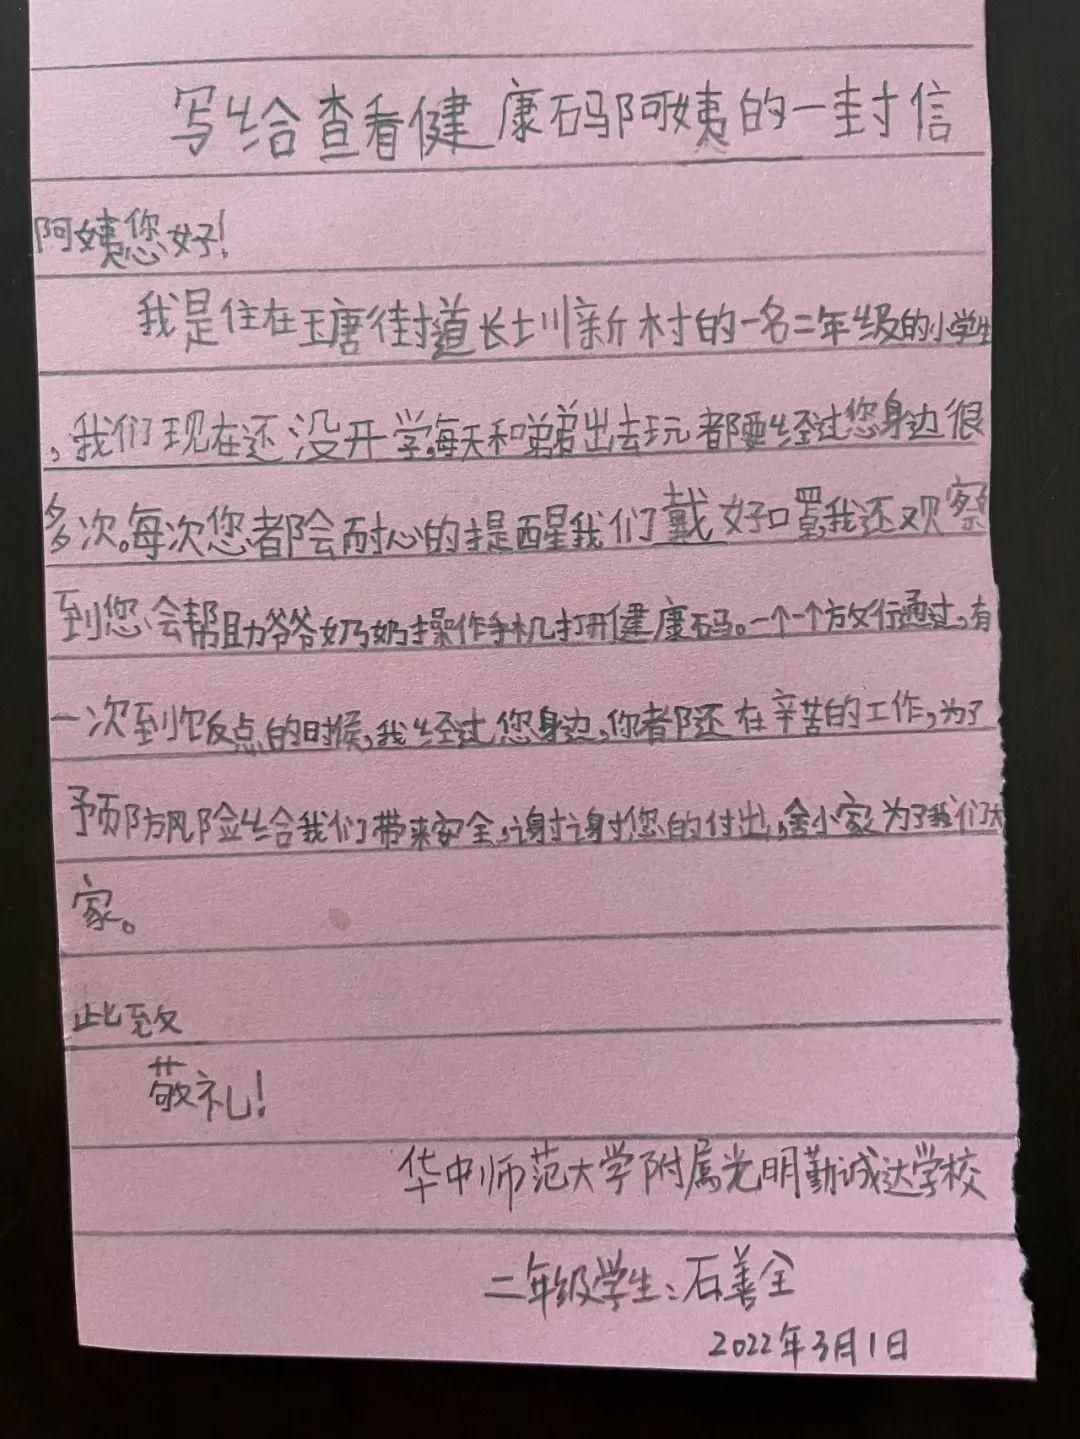 写给查看健康码阿姨的一封信
阿姨您好!
我是住在玉塘街道长圳新村的一名二年级的小学生
,我们现在还没开学,每天和弟弟出去玩都要经过您身边很
多次。每次您都会耐心的提醒我们戴好口罩,我还观察
到您会帮助爷爷奶奶操作手机打开健康码。一个一个放行通过,有
一次到饭点的时候,我经过您身边,你都还在辛苦的工作,为了
预防风险给我们带来安全,谢谢您的付出,舍小家为了我们大
家。
此致
敬礼!
华中师范大学附属光明勤诚达学校
二年级学生:石善全
2022年3月1日